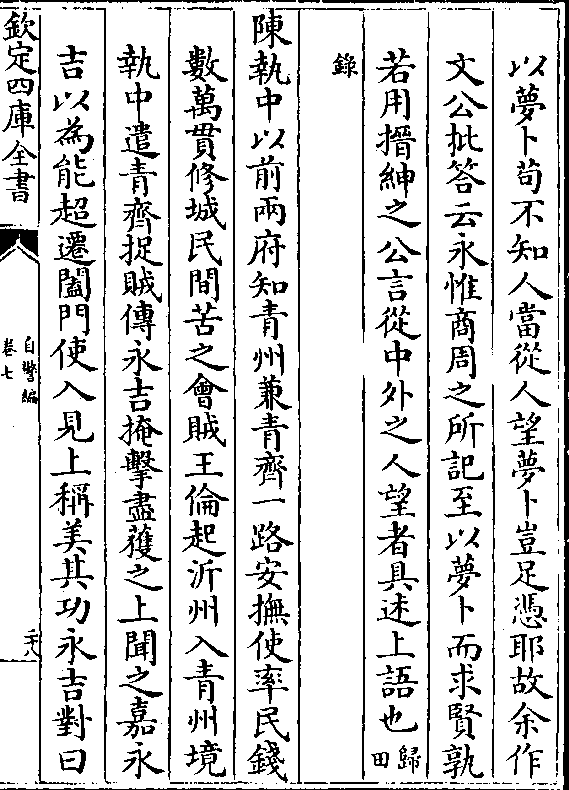 以夢卜苟不知人當從人望夢卜豈足憑耶故余作
文公批答云永惟商周之所記至以夢卜而求賢孰
若用搢紳之公言從中外之人望者具述上語也歸田
錄
陳執中以前兩府知青州兼青齊一路安撫使率民錢
數萬貫修城民間苦之會賊王倫起沂州入青州境
執中遣青齊捉賊傳永吉掩擊盡獲之上聞之嘉永
吉以為能超遷閤門使入見上稱美其功永吉對曰
欽定四庫全書
自警編
卷七
二十八